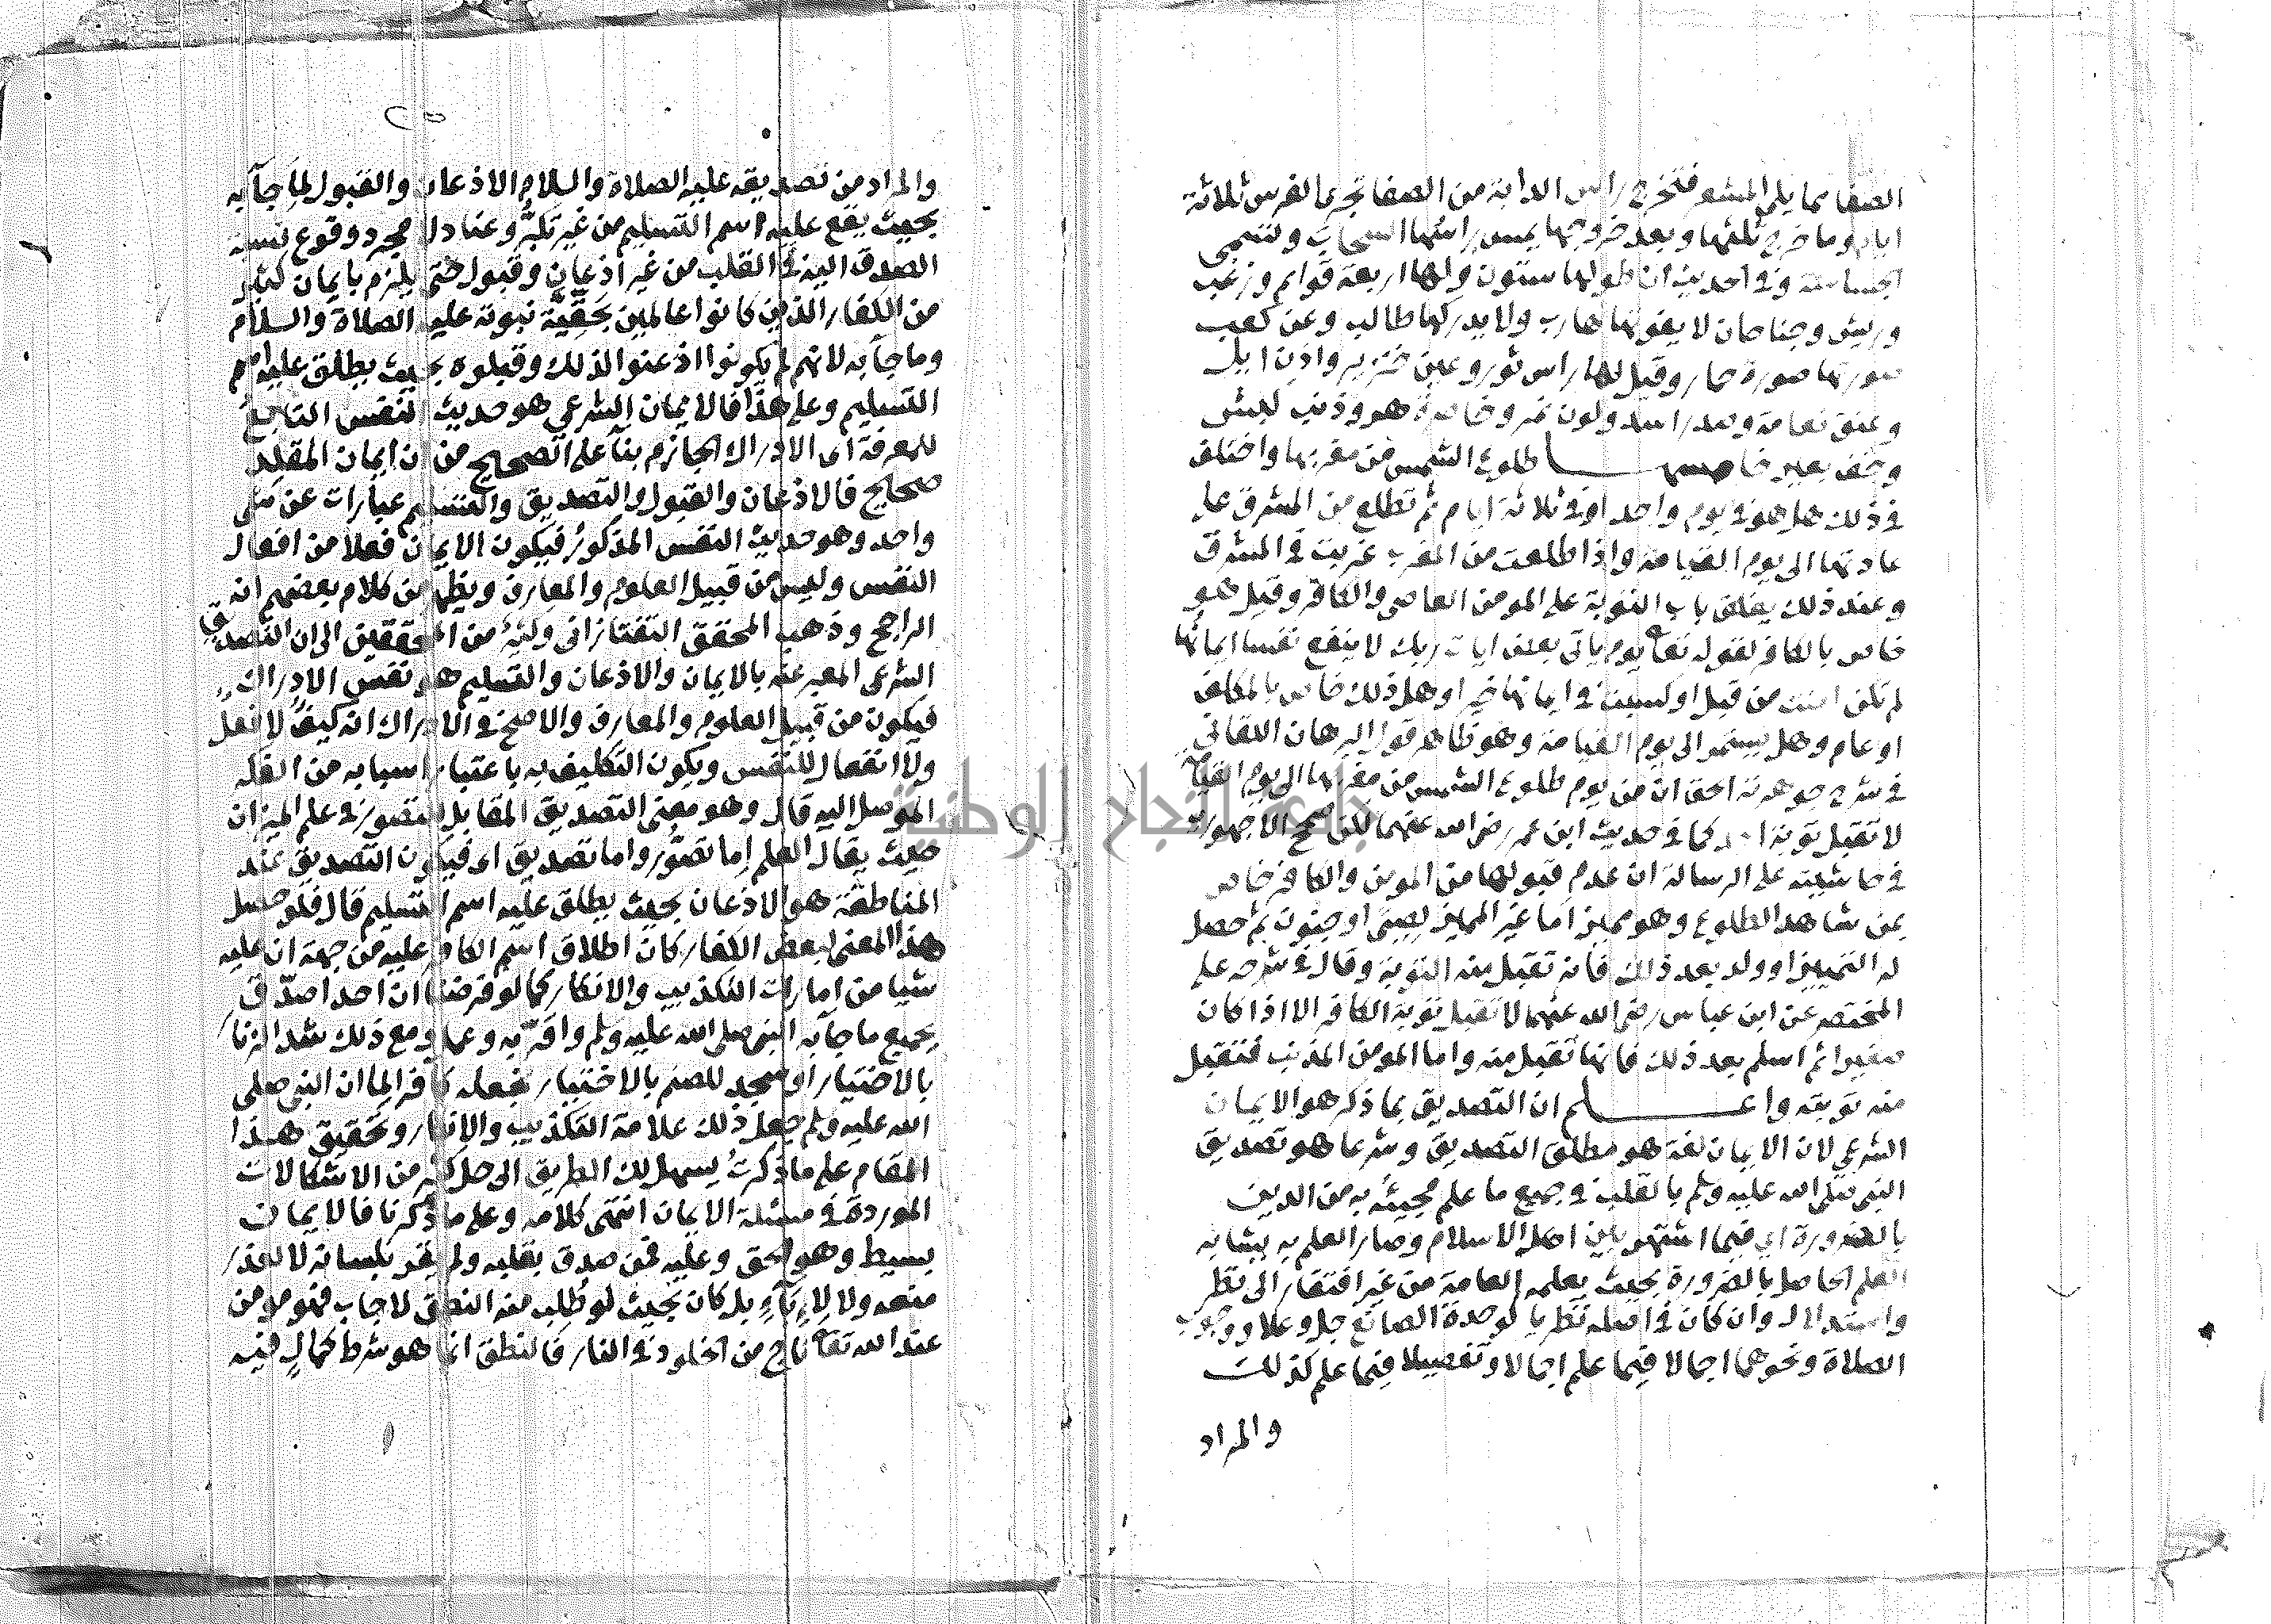 الصفا مما يلى المشعر فتخرج راس الدابة من الصفا تجرى الفرس ثلاثة
ايام وما خرج ثلثها وبعد خروجها يمس راسها السحاب وتسمى
الجساسة وفى الحديث ان طولها ستون ولها اربعة قوايم وزغب
وريش وجناحان لا يفوتها هارب ولا يدركها طالب وعن كعب
صورتها صورة حمار وقيل لها راس ثور وعين خنزير واذن ايل
وعنق نعامة وصدر اسد ولون نمر وخاصرة هر وذنب كبش
وخف بعير خامسها طلوع الشمس من مغربها واختلف
فى ذلك هل هو فى يوم واحد او فى ثلاثة ايام ثم تطلع من المشرق على
عادتها الى يوم القيامة واذا طلعت من المغرب غربت فى المشرق
وعند ذلك يغلق باب التوبة على المومن العاصى والكافر وقيل هو
خاص بالكافر لقوله تعا يوم ياتى بعض ايات ربك لا ينفع نفسا ايمانها
لم تكن امنت من قبل او كسبت فى ايمانها خيرا وهل ذلك خاص بالمكلف
او عام وهل يستمر الى يوم القيامة وهو ظاهر قول البرهان اللقانى
فى شرح جوهرته الحق ان من يوم طلوع الشمس من مغربها الى يوم القيامة
لا تقبل توبة احد كما فى حديث ابن عمر رضى الله عنهما لكن صحح الاجهورى
فى حاشيته على الرسالة ان عدم قبولها من المومن والكافر خاص
بمن شاهد الطلوع وهو مميز اما غير المميز لصبى او جنون ثم حصل
له التمييز او ولد بعد ذلك فانه تقبل منه التوبة وقال فى شرحه على
المختصر عن ابن عباس رضى الله عنهما لا تقبل توبة الكافر الا اذا كان
صغيرا ثم اسلم بعد ذلك فانها تقبل منه واما المومن المذنب فتقبل
منه توبته واعلم ان التصديق بما ذكر هو الايمان
الشرعى لان الايمان لغة هو مطلق التصديق وشرعا هو تصديق
النبى صلى الله عليه وسلم بالقلب فى جميع ما علم مجيئه به من الدين
بالضرورة اى فيما اشتهر بين اهل الاسلام وصار العلم به يشابه
العلم الحاصل بالضرورة بحيث يعلمه العامة من غير افتقار الى نظر
واستدلال وان كان فى اصله نظريا كوحدة الصانع جل وعلا ووجوب
الصلاة ونحوهما اجمالا فيما علم اجمالا وتفصيلا فيما علم كذلك
والمراد
والمراد من تصديقه عليه الصلاة والسلام الاذعان والقبول لما جآ به
بحيث يقع عليه اسم التسليم من غير تكبر وعناد لا مجرد وقوع نسبة
الصدق اليه فى القلب من غير اذعان وقبول حتى يلزم بايمان كثير
من الكفار الذين كانوا عالمين بحقية نبوته عليه الصلاة والسلام
وما جآ به لانهم لم يكونوا اذعنوا لذلك وقبلوه بحيث يطلق عليه اسم
التسليم وعلى هذا فالايمان الشرعى هو حديث النفس التابع
للمعرفة اى الادراك الجازم بنآ على الصحيح من ان ايمان المقلد
صحيح فالاذعان والقبول والتصديق والتسليم عبارات عن شى
واحد وهو حديث النفس المذكور فيكون الايمان فعلا من افعال
النفس وليس من قبيل العلوم والمعارف ويظهر من كلام بعضهم انه
الراجح وذهب المحقق التفتازانى وكثير من المحققين الى ان التصديق
الشرعى المعبر عنه بالايمان والاذعان والتسليم هو نفس الادراك
فيكون من قبيل العلوم والمعارف والاصح فى الادراك انه كيف لا فعل
ولا انفعال للنفس ويكون التكليف به باعتبار اسبابه من الفكر
الموصل اليه قال وهو معنى التصديق المقابل للتصور فى علم الميزان
حيث يقال العلم اما تصور واما تصديق اى فيكون التصديق عند
المناطقة هو الاذعان بحيث يطلق عليه اسم التسليم قال فلو حصل
هذا المعنى لبعض الكفار كان اطلاق اسم الكافر عليه من جهة ان عليه
شيا من امارات التكذيب والانكار كما لو فرضنا ان احدا صدق
بجميع ما جآ به النبى صلى الله عليه وسلم واقر به وعمل ومع ذلك شد الزنار
بالاختيار او سجد للصنم بالاختيار نجعله كافرا لما ان النبى صلى
الله عليه وسلم جعل ذلك علامة التكذيب والانكار وتحقيق هذا
المقام على ما ذكرت يسهل لك الطريق الى حل كثير من الاشكالات
الموردة فى مسئلة الايمان انتهى كلامه وعلى ما ذكرنا فالايمان
بسيط وهو الحق وعليه فمن صدق بقلبه ولم يقر بلسانه لا لعذر
منعه ولا لإبآء بل كان بحيث لو طلب منه النطق لاجاب فهو مومن
عند الله تعا ناج من الخلود فى النار فالنطق انما هو شرط كمال فيه
جامعة النجاح الوطنية